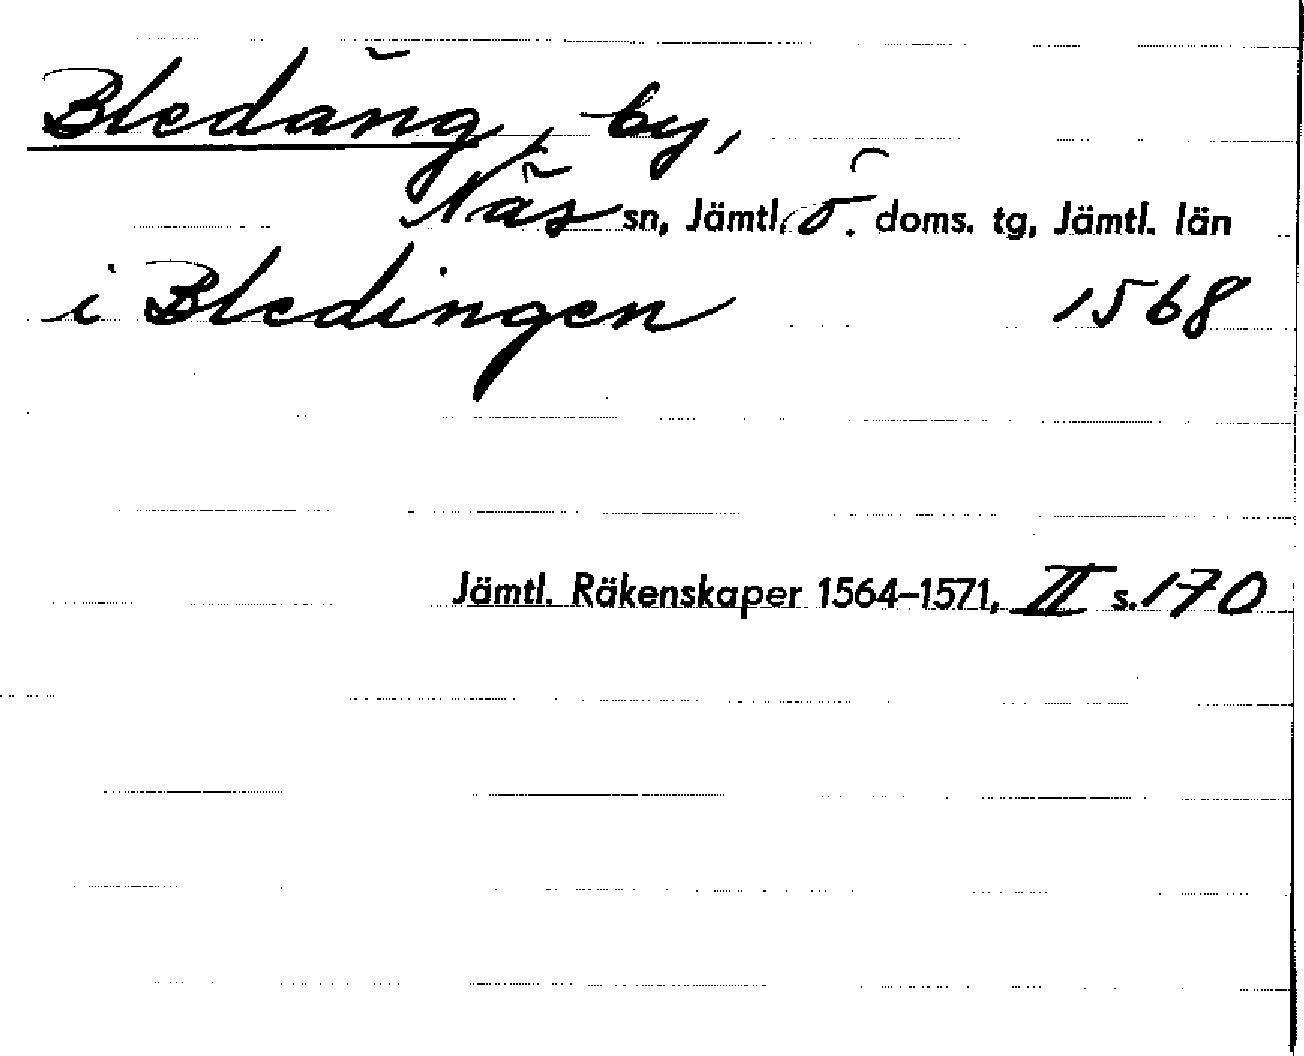 Bledäng, by,
Näs sn, Jämtl. ö. doms. tg, Jämtl. län
i Bledingen 1568
Jämtl. Räkenskaper 1564–1571, II s. 170